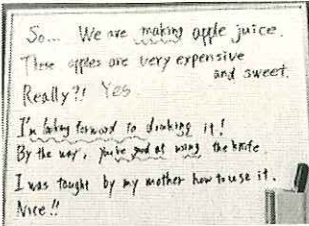 So... We are making apple juice.
These apples are very expensive
and sweet.
Really?! Yes
I'm looking forward to drinking it!
By the way, you're good at using the knife.
I was taught by my mother how to use it.
Nice!!